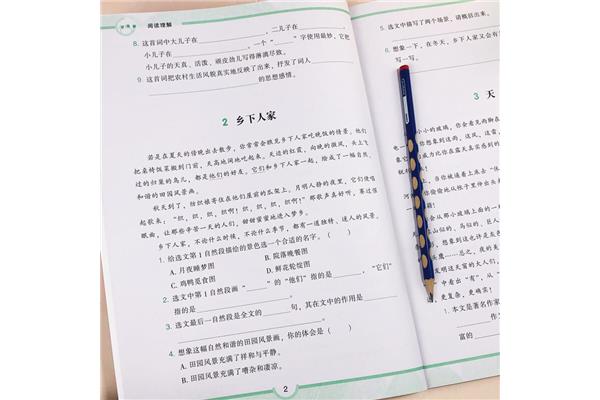 阅读理解
8. 这首词中大儿子在 ，二儿子在 ，
小儿子在 。一个“ ”字使用最妙，它把
小儿子的天真、活泼、顽皮劲儿写得淋漓尽致。
9. 这首词把农村生活风貌真实地反映了出来，抒发了词人
的思想感情。
2 乡下人家
若是在夏天的傍晚出去散步，你常常会瞧见乡下人家吃晚饭的情景。他们
把桌椅饭菜搬到门前，天高地阔地吃起来。天边的红霞，向晚的微风，头上飞
过的归巢的鸟儿，都是他们的好友。它们和乡下人家一起，绘成了一幅自然、
和谐的田园风景画。
秋天到了，纺织娘寄住在他们屋前的瓜架上。月明人静的夜里，它们便唱
起歌来：“织，织，织，织啊！织，织，织，织啊！”那歌声真好听，赛过催
眠曲，让那些辛苦一天的人们，甜甜蜜蜜地进入梦乡。
乡下人家，不论什么时候，不论什么季节，都有一道独特、迷人的风景。
1. 给选文第1自然段描绘的景色选一个合适的名字。（ ）
A. 月夜睡梦图 B. 院落晚餐图
C. 鸡鸭觅食图 D. 鲜花轮绽图
2. 选文中第1自然段画“ ”的“他们”指的是 ，“它们”
指的是 。
3. 选文最后一自然段是全文的 句，其在文中的作用是
。
4. 想象这幅自然和谐的田园风景画，你的体会是（ ）
A. 田园风景充满了祥和与平静。
B. 田园风景充满了嘈杂和凄凉。
2
5. 选文中描写了两个场景，请概括出来。
6. 想象一下，在冬天，乡下人家又会有
写一写。
3 天
小小的玻璃，你会看见雨脚在
你想象到这雨，这风，这雷，
的威力比你在露天真实感到的
当你被逼着上床去“休
你偷偷地从帐子里伸出头
会从那小玻璃上面的一
山似的、马似的、巨人
，想象到这也许是灰色
鹰……总之，美的
发明这天窗的大人们，
中看出“有”，从“
更复杂，更确实！
1. 本文是著名作家
作为
富的